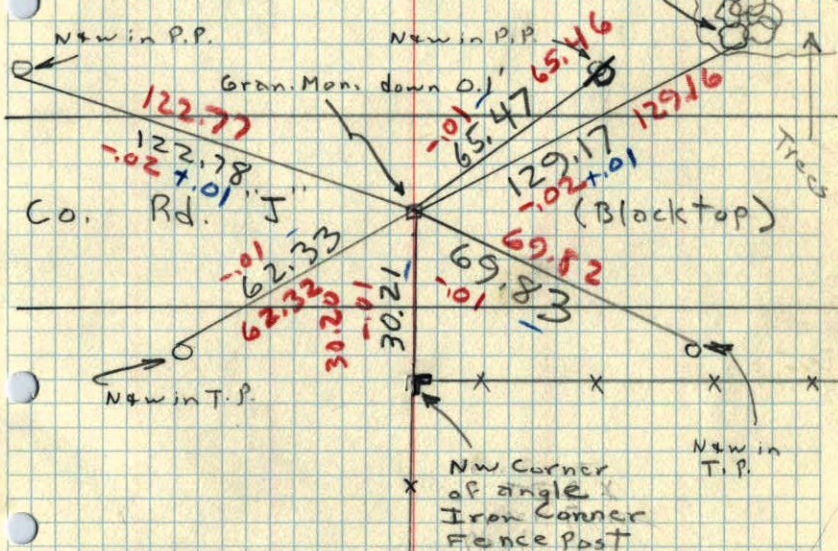 N&W in P.P.
N&W in P.P.
Gran. Mon. down 0.1'
65.46
122.77
122.78
-.02 +.01
-.01
65.47
129.16
129.17
-.02 +.01
Trees
Co. Rd. "J"
(Blacktop)
-.01
62.33
62.32
30.20
-.01
30.21
69.82
69.83
-.01
N&W in T.P.
N&W in
T.P.
NW Corner
of angle
Iron Corner
Fence Post